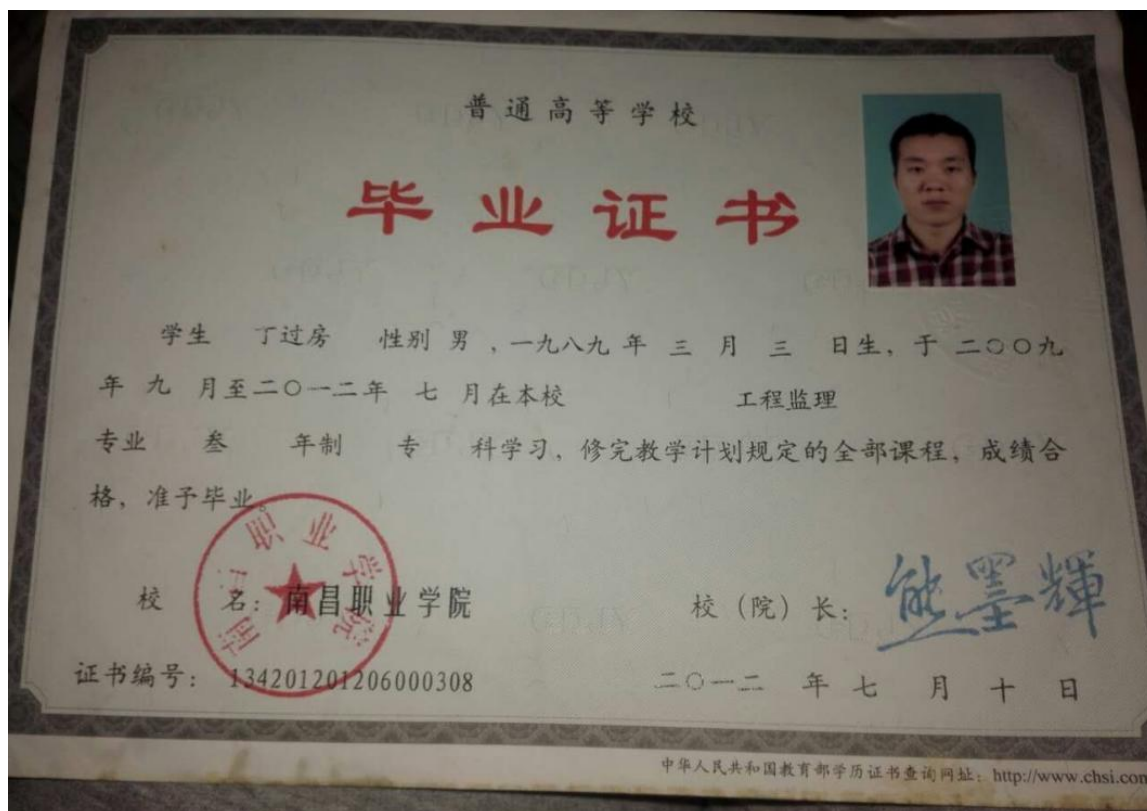 普通高等学校
毕业证书
学生 丁过房 性别 男 ,一九八九 年 三 月 三 日生, 于 二〇〇九
年 九 月至二〇一二年 七 月在本校 工程监理
专业 叁 年制 专 科学习, 修完教学计划规定的全部课程, 成绩合
格, 准予毕业。
职业学院
校 名: 南昌职业学院 校 (院) 长: 熊墨輝
证书编号: 134201201206000308 二〇一二 年 七 月 十 日
中华人民共和国教育部学历证书查询网址: http://www.chsi.com